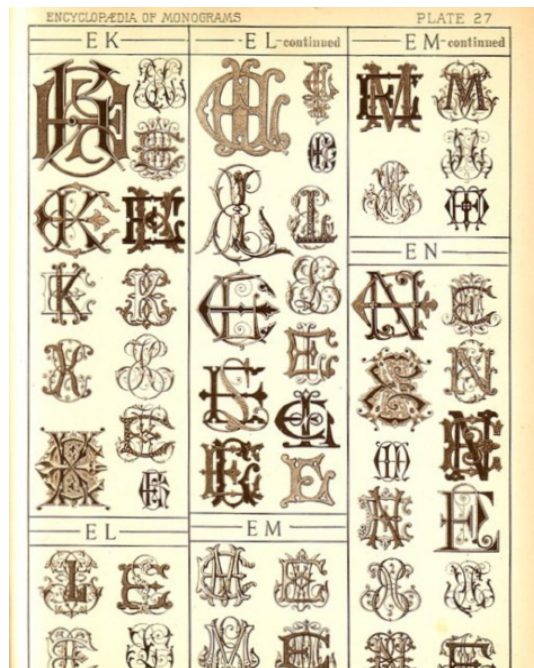 ENCYCLOPÆDIA OF MONOGRAMS
PLATE 27
E K
E L
E L-continued
E M
E M-continued
E N